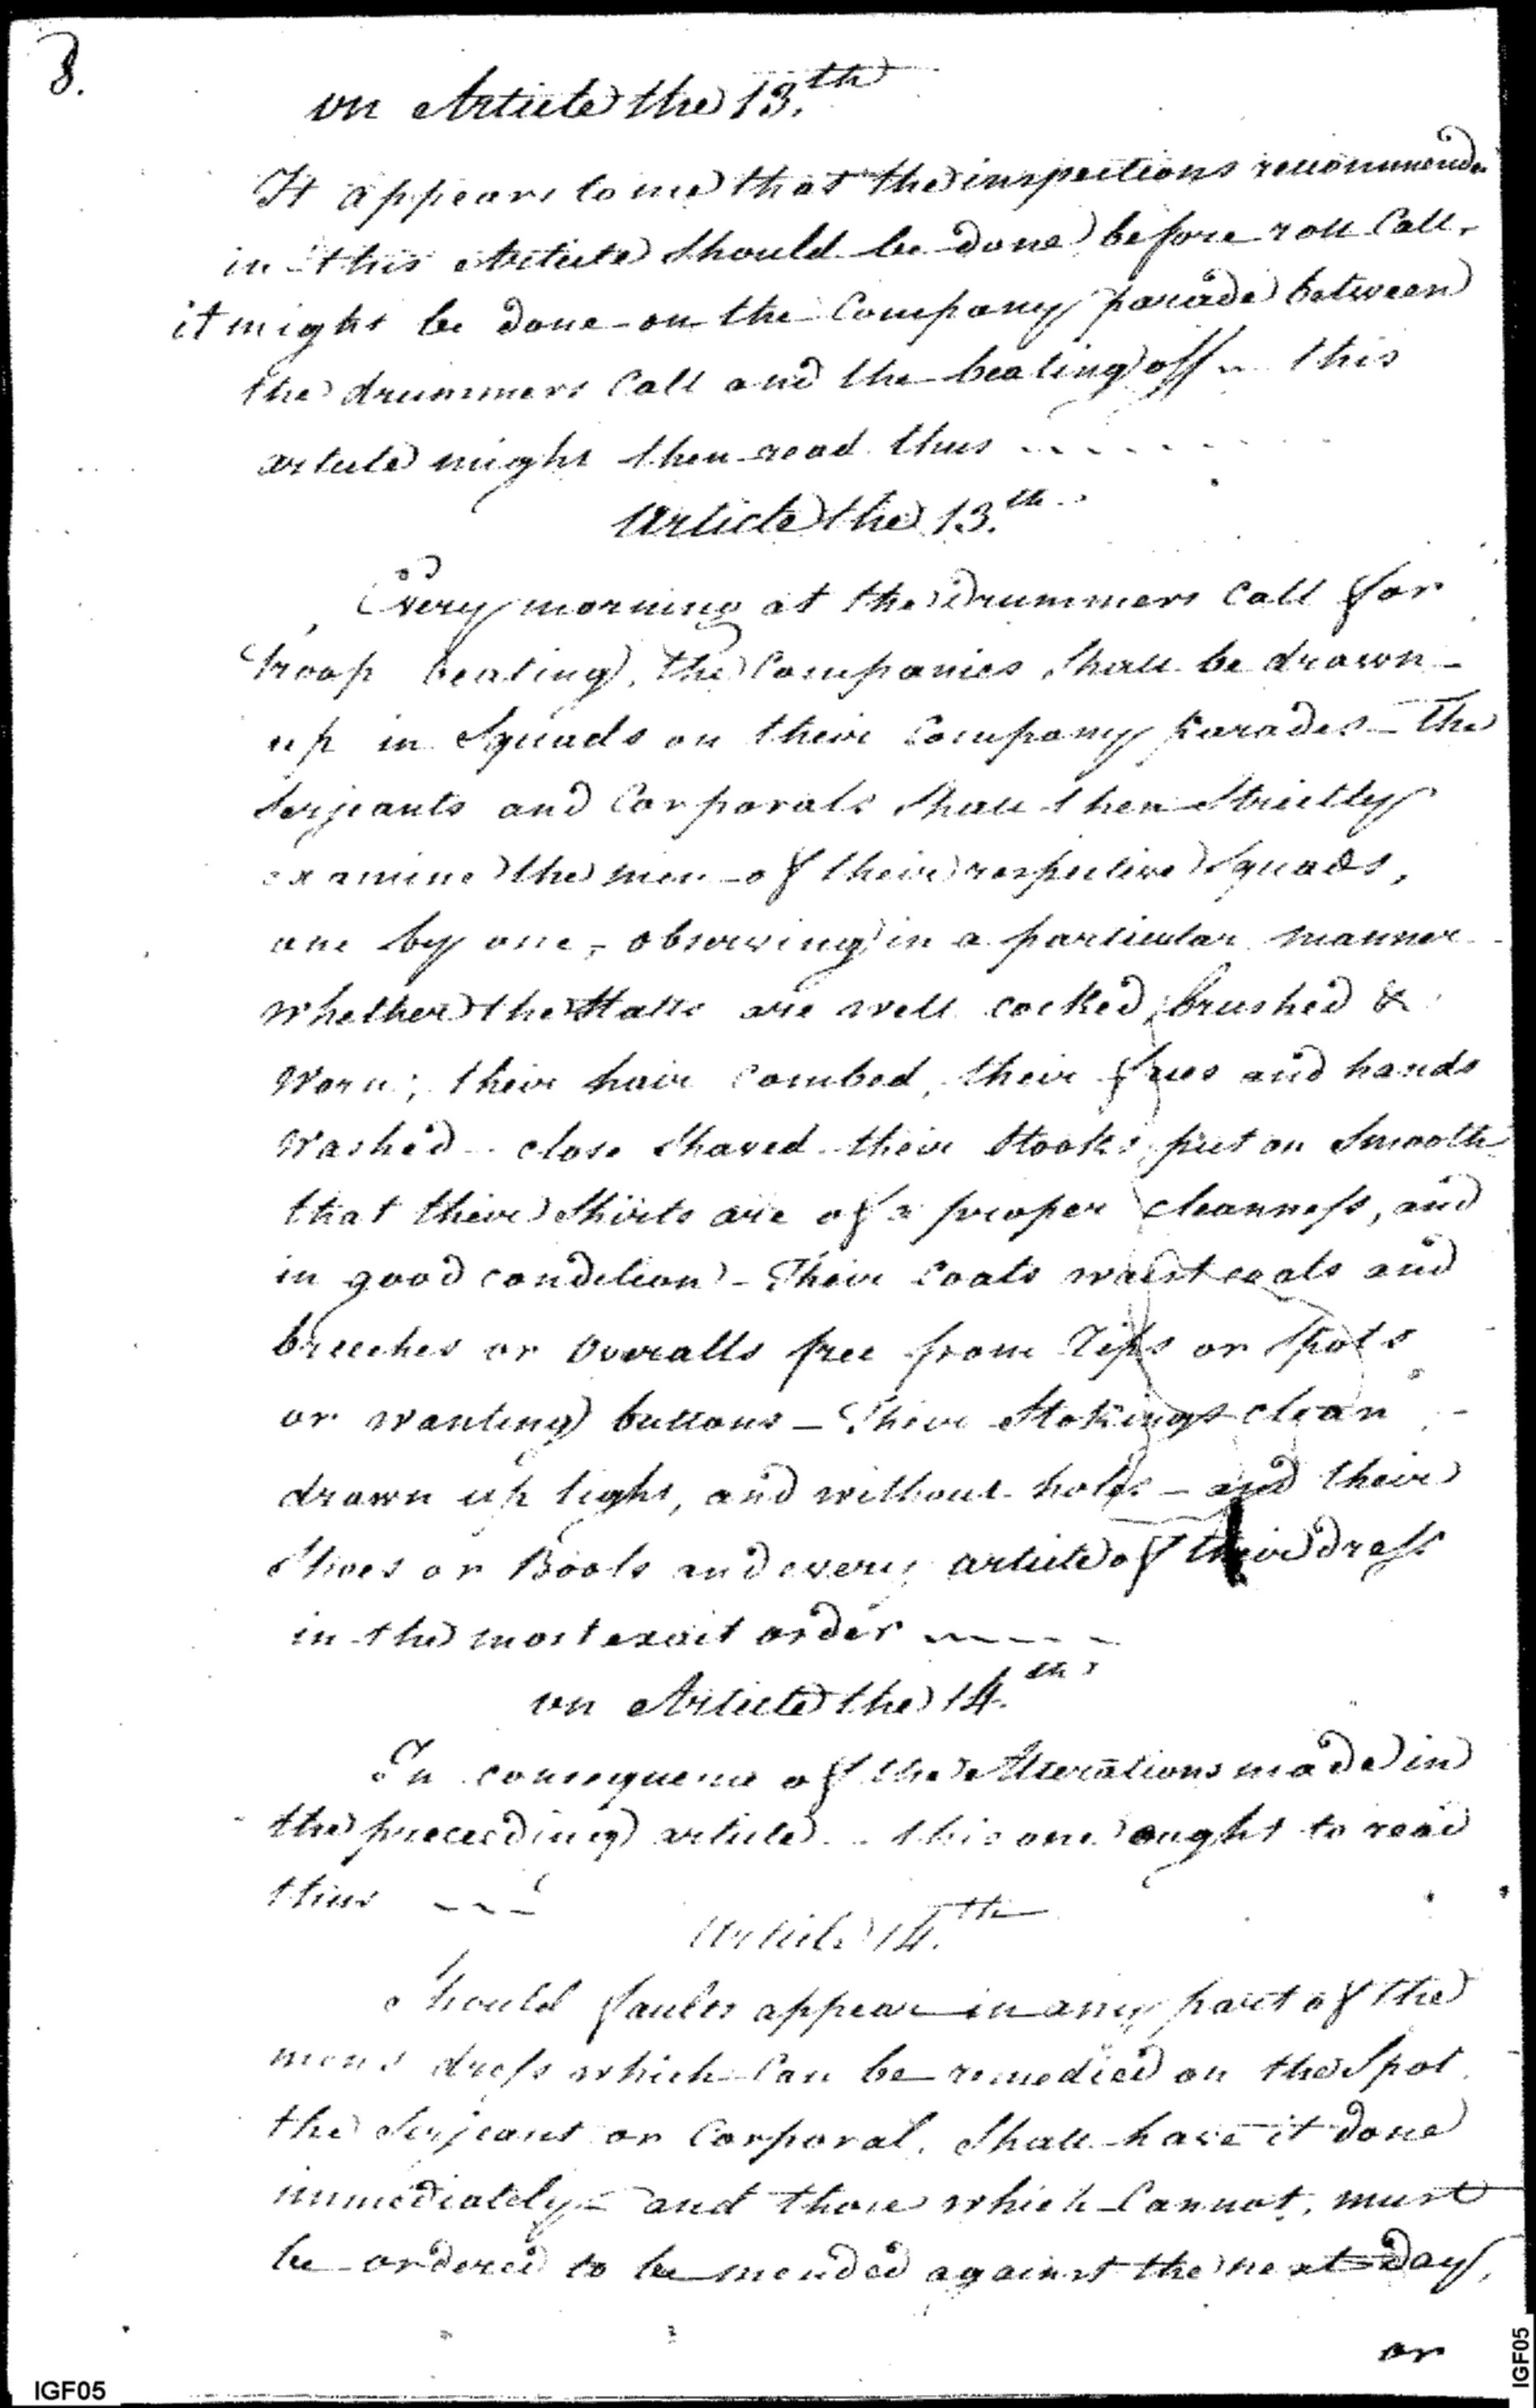 8.
on Article the 13.th
It appears to me that the inspections recommended
in this Article Should be done before roll Call,
it might be done on the Company parade between
the drummers Call and the beating off - this
article might then read thus - - - - -
Article the 13.th
Every morning at the Drummers Call for
troop beating, the Companies Shall be drawn -
up in Squads on their Company Parades - The
Serjeants and Corporals Shall then Strictly
examine the men of their respective Squads,
one by one, observing in a particular manner
whether the Hatts are well cocked, brushed &
Worn; their hair Combed, their faces and hands
Washed - close Shaved their Stocks put on Smooth
that their Shirts are of a proper cleanness, and
in good condition - Their Coats waistcoats and
breeches or Overalls free from Rips or Spots
or wanting buttons - Their Stokings clean -
drawn up tight, and without holes - and their
Shoes or Boots and every article of their dress
in the most exact order - - - -
on Article the 14.th
In consequence of the Alterations made in
the preceeding article - this one ought to read
thus - - -
Article 14.th
Should faults appear in any part of the
mens dress which Can be remedied on the Spot
the Serjeant or Corporal, Shall have it done
immediately - and those which Cannot, must
be ordered to be mended against the next Day,
or
IGF05
IGF05